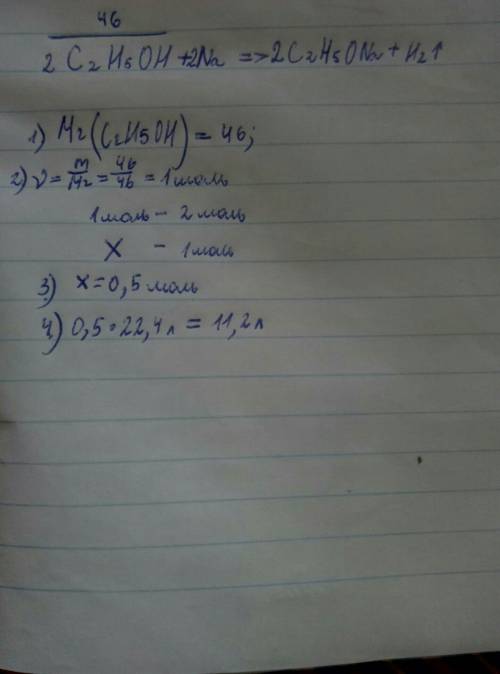 46
2 C₂H₅OH + 2Na => 2C₂H₅ONa + H₂↑
1) Mr(C₂H5OH) = 46;
2) ν = m/Mr = 46/46 = 1 моль
1 моль - 2 моль
X - 1 моль
3) x = 0,5 моль
4) 0,5 · 22,4 л = 11,2 л